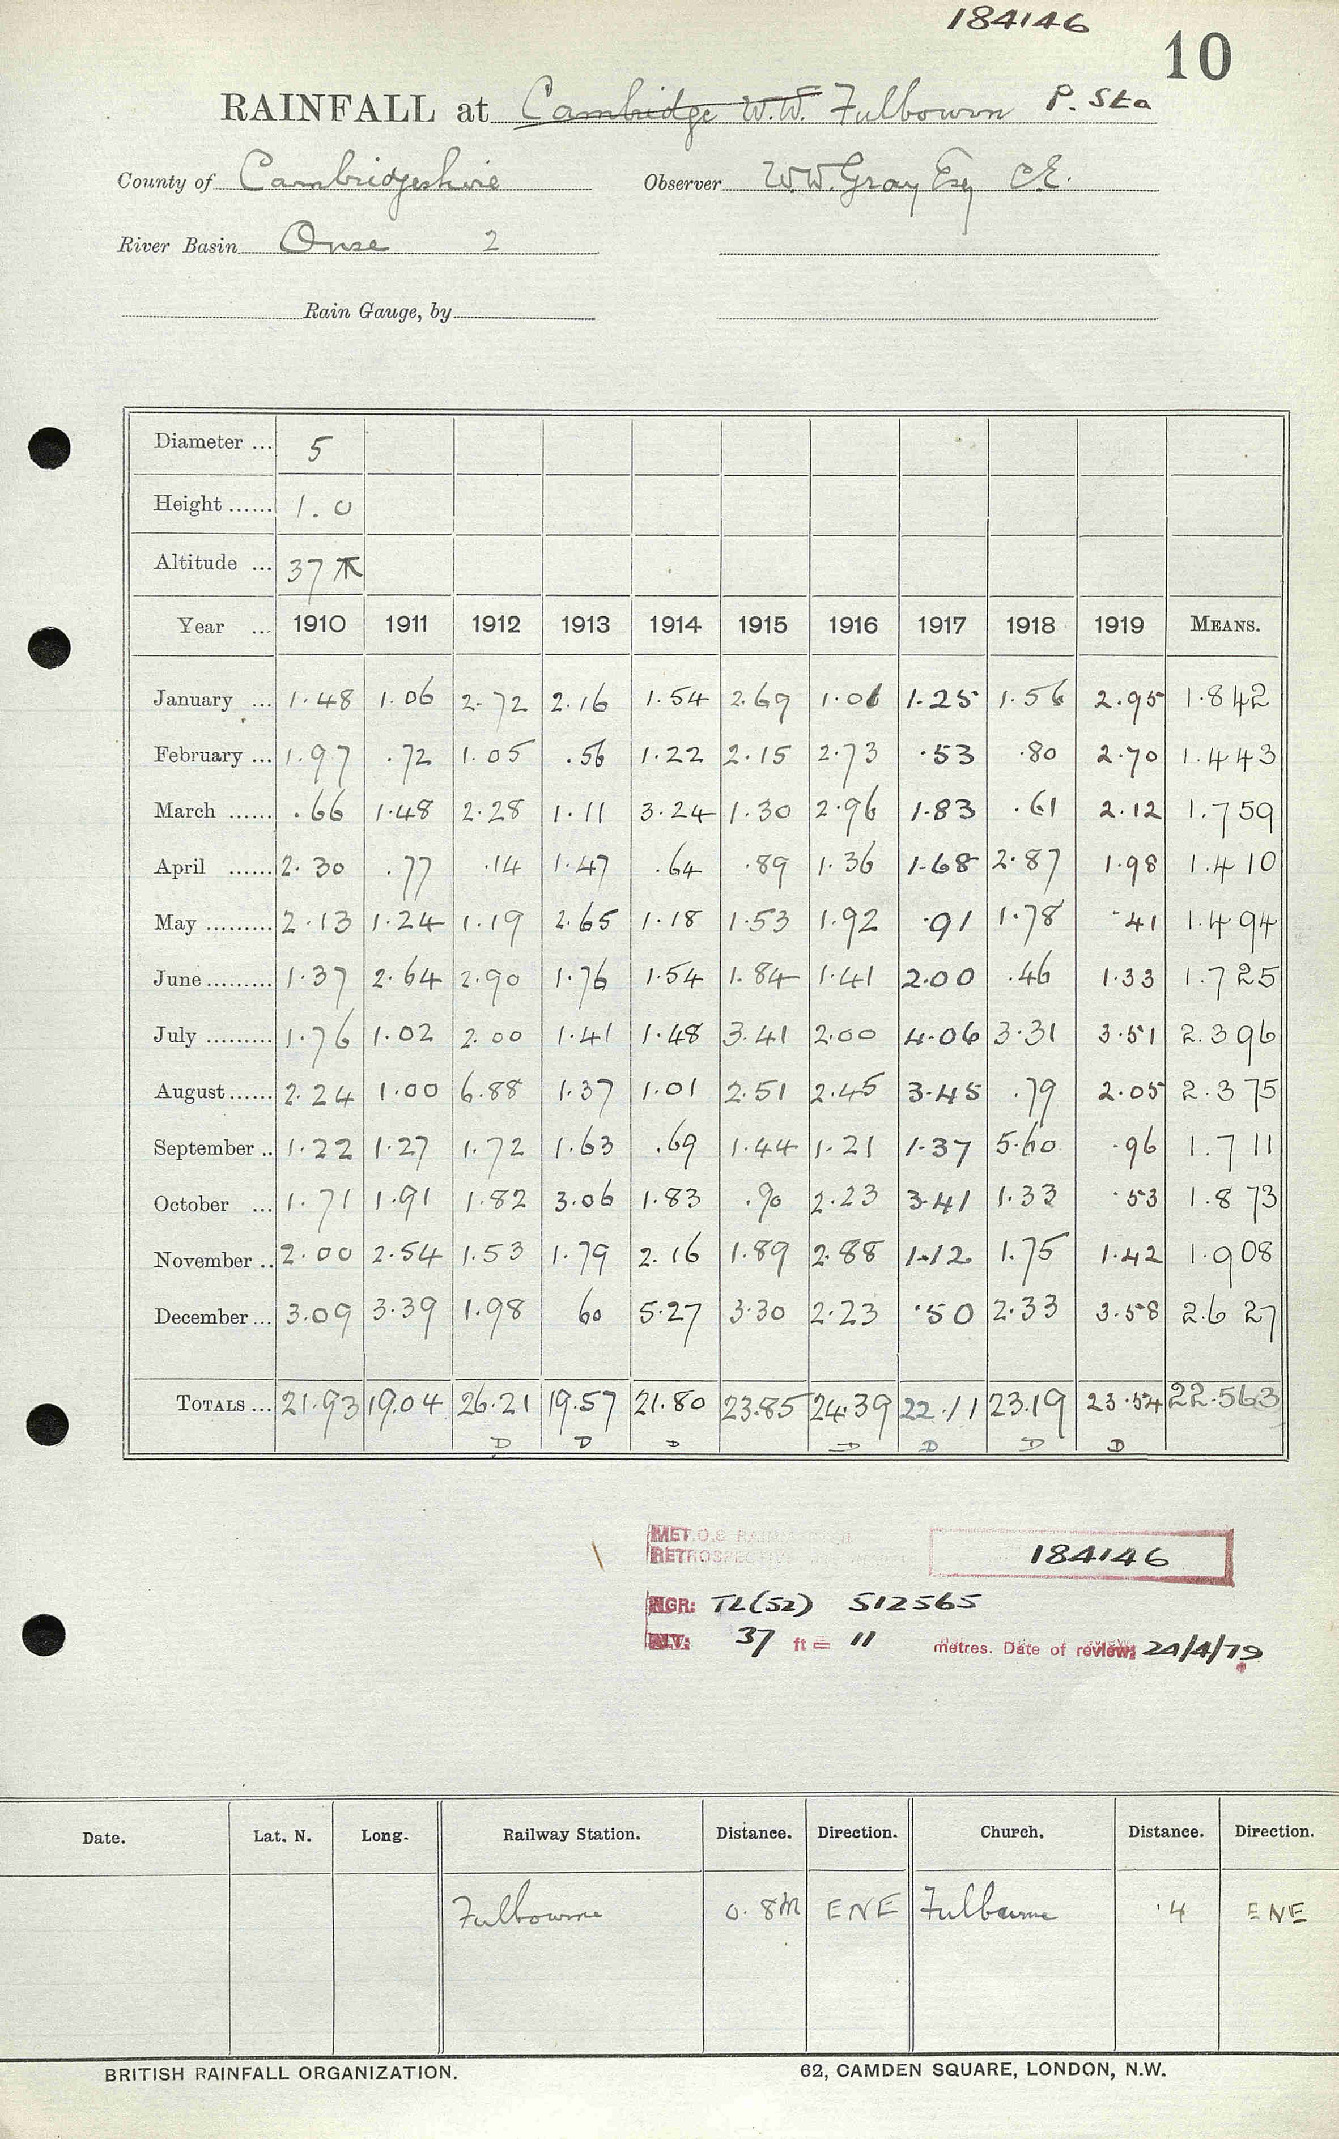 184146
10
RAINFALL at Cambridge W.W. Fulbourn P. Sta
County of Cambridgeshire Observer W.W. Gray Esq C.E.
River Basin Ouse 2
Rain Gauge, by
Diameter ... 5
Height ...... 1.0
Altitude ... 37
Year ... 1910 1911 1912 1913 1914 1915 1916 1917 1918 1919 MEANS.
January ... 1.48 1.06 2.72 2.16 1.54 2.69 1.01 1.25 1.56 2.95 1.842
February ... 1.97 .72 1.05 .56 1.22 2.15 2.73 .53 .80 2.70 1.443
March ...... .66 1.48 2.28 1.11 3.24 1.30 2.96 1.83 .61 2.12 1.759
April ...... 2.30 .77 .14 1.47 .64 .89 1.36 1.68 2.87 1.98 1.410
May ......... 2.13 1.24 1.19 2.65 1.18 1.53 1.92 .91 1.78 .41 1.494
June ......... 1.37 2.64 2.90 1.76 1.54 1.84 1.41 2.00 .46 1.33 1.725
July ......... 1.76 1.02 2.00 1.41 1.48 3.41 2.00 4.06 3.31 3.51 2.396
August ...... 2.24 1.00 6.88 1.37 1.01 2.51 2.45 3.45 .79 2.05 2.375
September .. 1.22 1.27 1.72 1.63 .69 1.44 1.21 1.37 5.60 .96 1.711
October ... 1.71 1.91 1.82 3.06 1.83 .90 2.23 3.41 1.33 .53 1.873
November .. 2.00 2.54 1.53 1.79 2.16 1.89 2.88 1.12 1.75 1.42 1.908
December ... 3.09 3.39 1.98 60 5.27 3.30 2.23 .50 2.33 3.58 2.627
TOTALS ... 21.93 19.04 26.21 19.57 21.80 23.85 24.39 22.11 23.19 23.54 22.563
D D D D D D D
MET.O.8
RETROSPECTIVE 184146
NGR: TL(52) 512565
37 ft = 11 metres. Date of review: 24/4/79
Date. Lat. N. Long. Railway Station. Distance. Direction. Church. Distance. Direction.
Fulbourne 0.8m ENE Fulbourne .4 ENE
BRITISH RAINFALL ORGANIZATION. 62, CAMDEN SQUARE, LONDON, N.W.